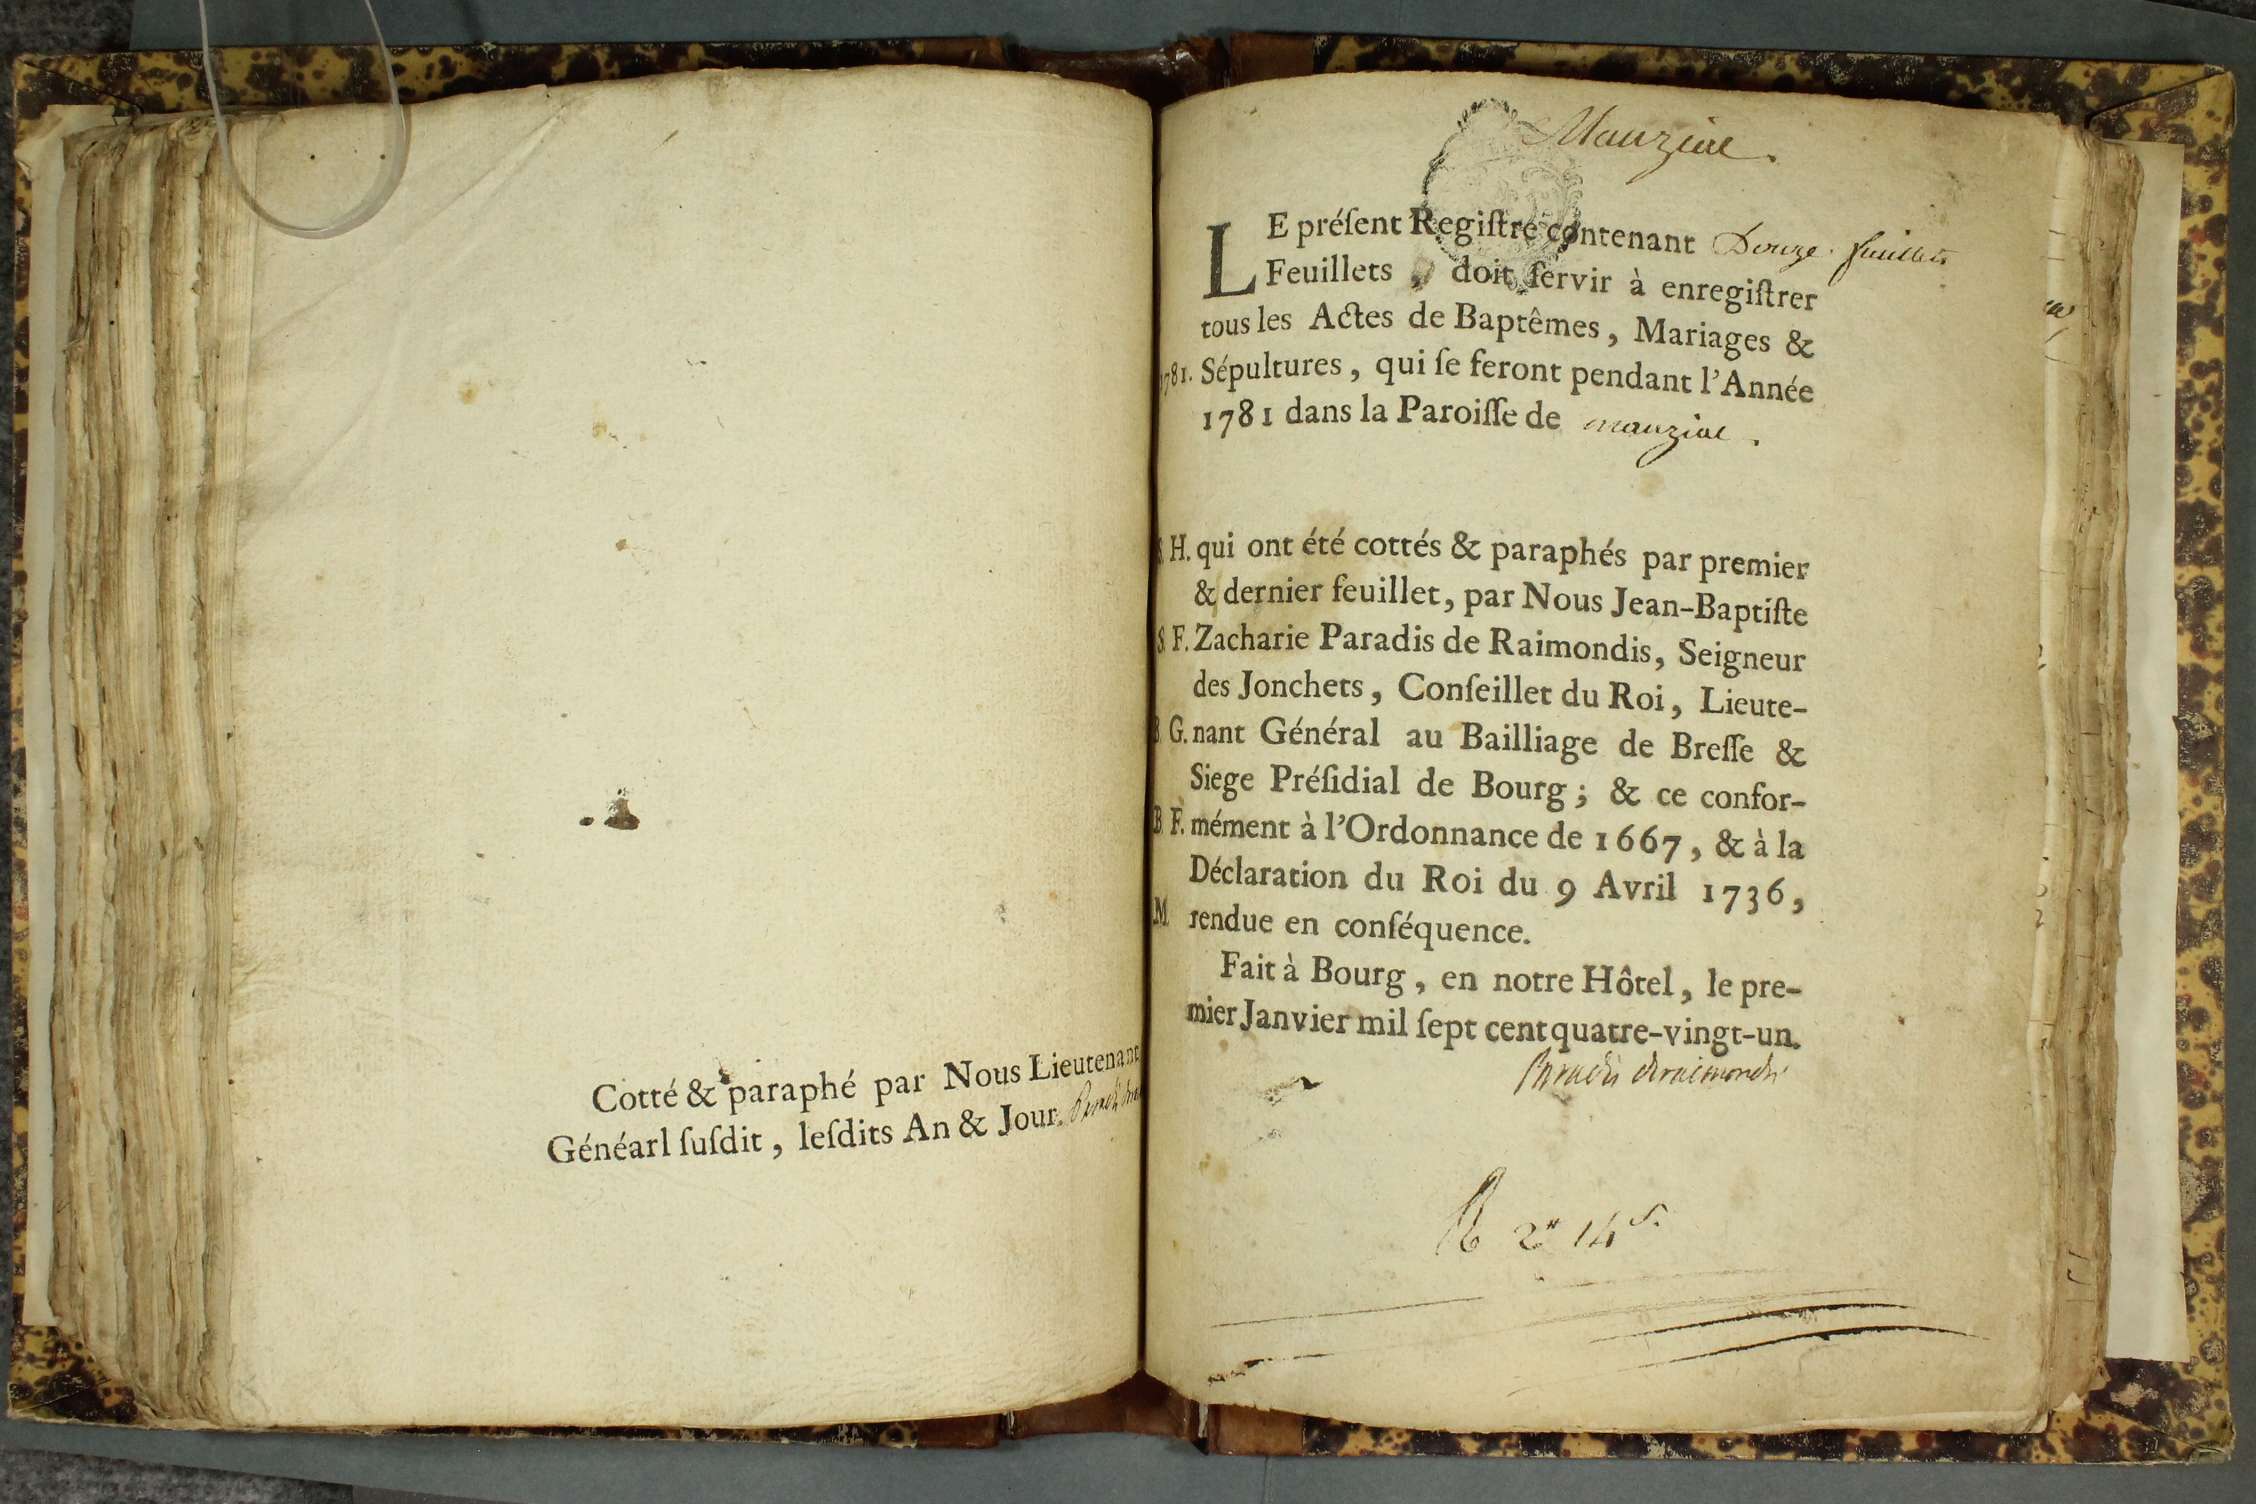 Cotté & paraphé par Nous Lieutenant
Généarl ſuſdit, leſdits An & Jour.
Mauziat.
LE préſent Regiſtre contenant Douze feuillets
Feuillets, doit ſervir à enregiſtrer
tous les Actes de Baptêmes, Mariages &
1781. Sépultures, qui ſe feront pendant l'Année
1781 dans la Paroiſſe de mauziat.
S. H. qui ont été cottés & paraphés par premier
& dernier feuillet, par Nous Jean-Baptiſte
S. F. Zacharie Paradis de Raimondis, Seigneur
des Jonchets, Conſeillet du Roi, Lieute-
B. G. nant Général au Bailliage de Breſſe &
Siege Préſidial de Bourg; & ce confor-
B. F. mément à l'Ordonnance de 1667, & à la
Déclaration du Roi du 9 Avril 1736,
M. rendue en conſéquence.
Fait à Bourg, en notre Hôtel, le pre-
mier Janvier mil ſept cent quatre-vingt-un.
Paradis deraimondis
R 2# 14s.